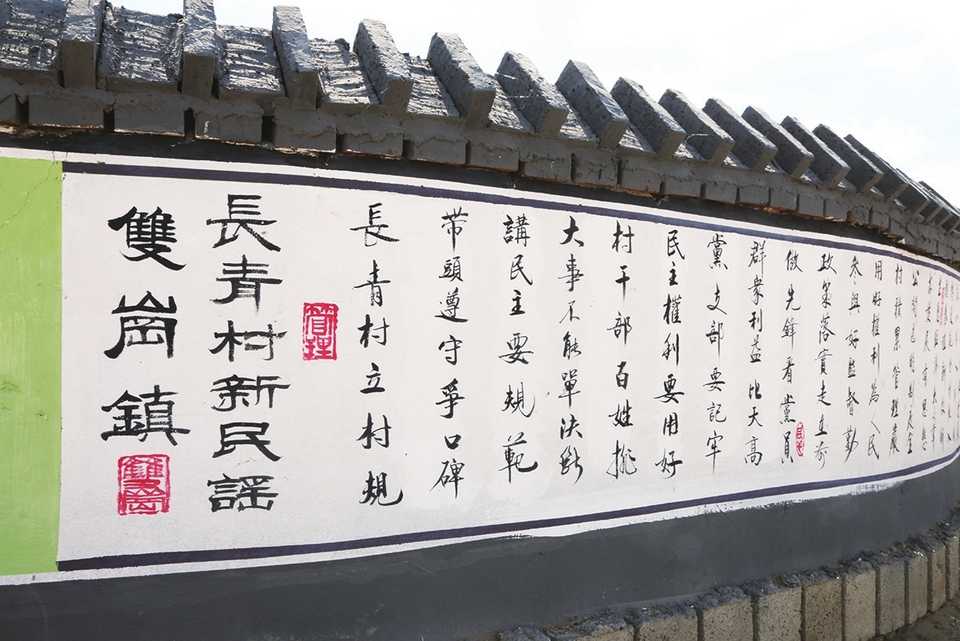 雙崗鎮
雙崗
長青村新民謠
管理
長青村立村規
带頭遵守爭口碑
講民主要規範
大事不能單決斷
村干部百姓挑
民主權利要用好
黨支部要記牢
群衆利益比大高
做先鋒看黨員
政策落實走在前
参與好監督勤
用好權利為人民
管理嚴